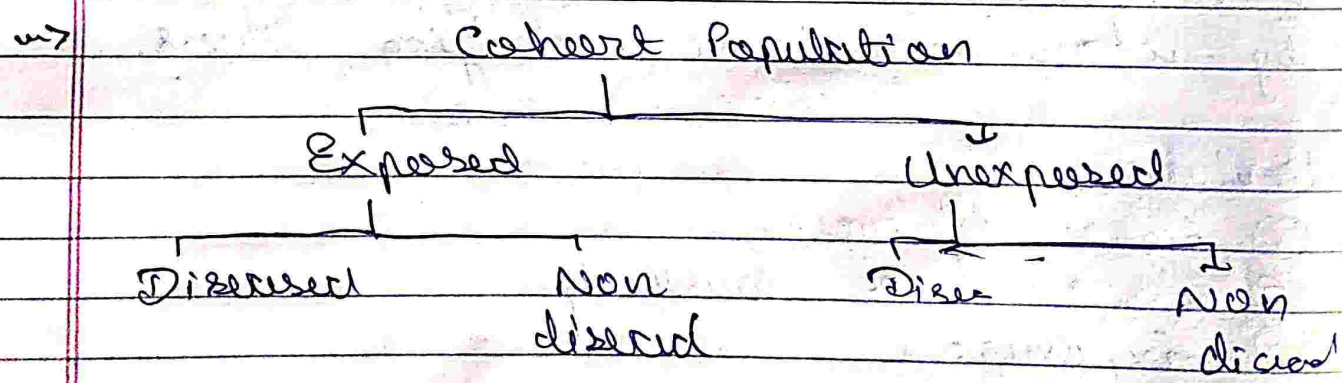 Cohort Population
Exposed Unexposed
Diseased Non Dise Non
diseased